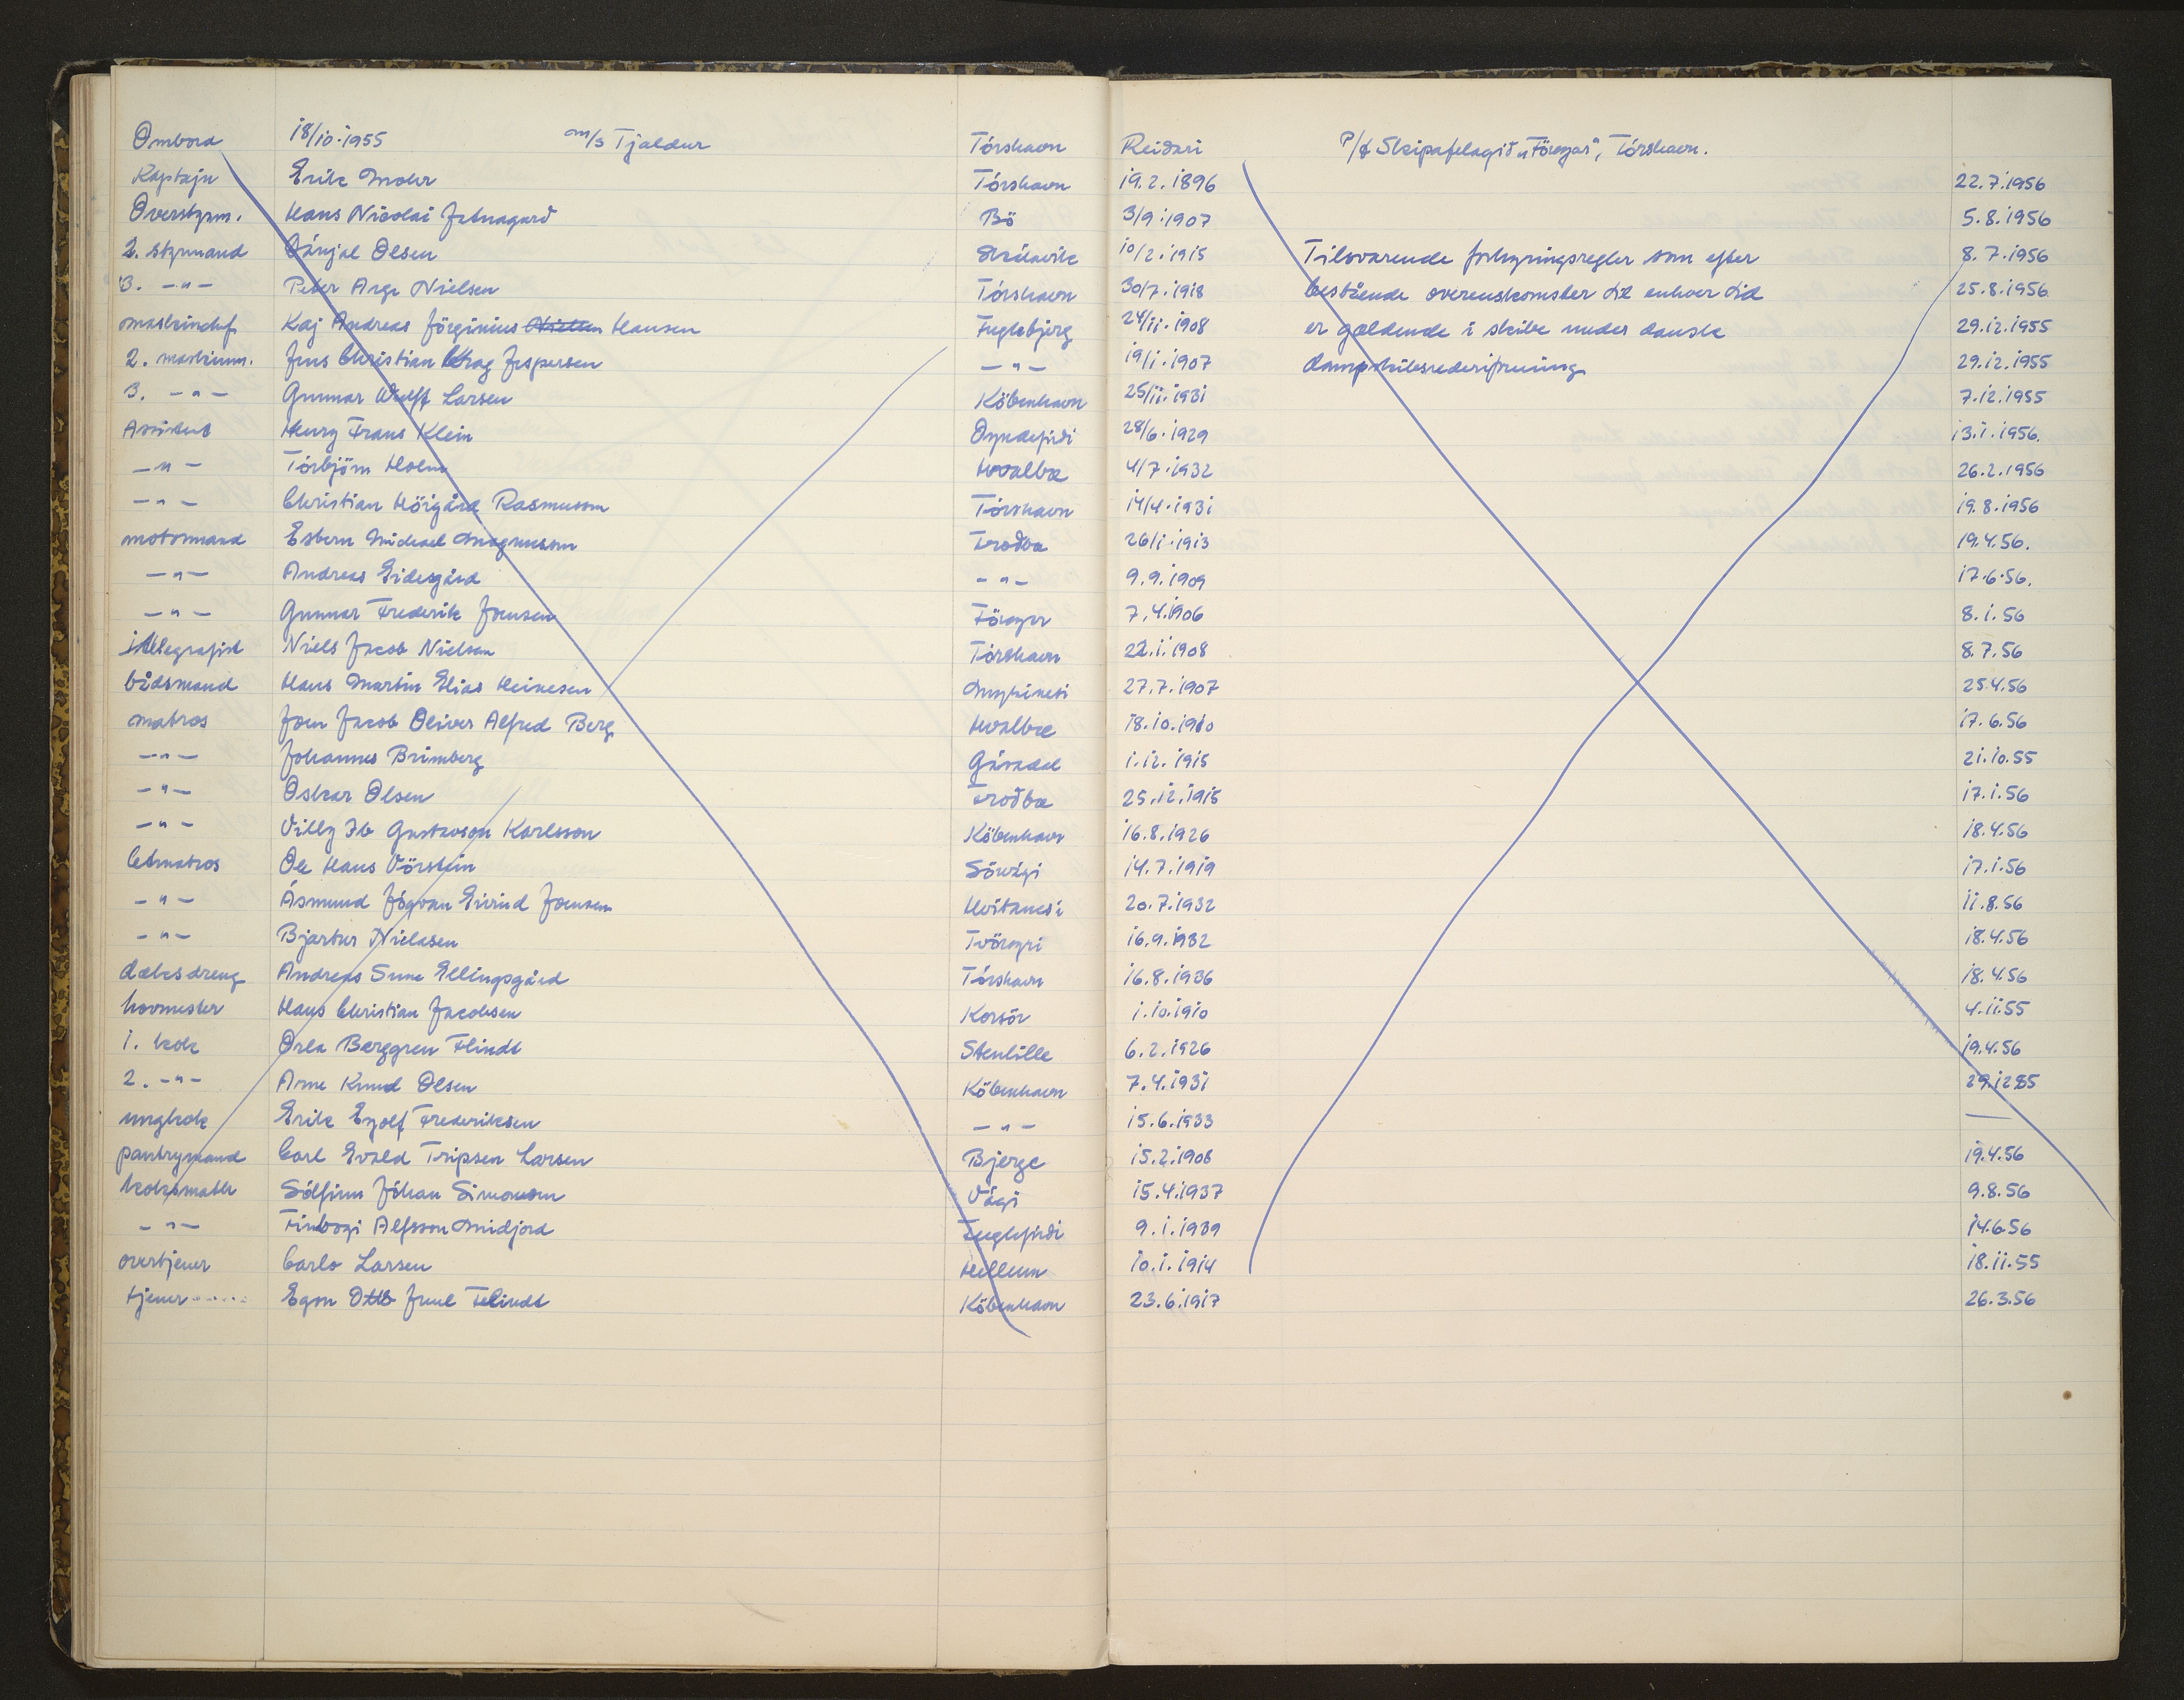 Ombord 18/10.1955 m/s Tjaldur Tórshavn Reiðari P/f Skipafelagið "Föroyar", Tórshavn.
Kaptajn Erik Mohr Tórshavn 19.2.1896 22.7.1956
Overstyrm. Hans Nicolai Jatnagard Bö 3/9.1907 5.8.1956
2. styrmand Dánjal Olsen Skálavik 10/2.1915 Tilsvarende forhyringsregler som efter 8.7.1956
3. -"- Peter Arge Nielsen Tórshavn 30/7.1918 bestående overenskomster til enhver tid 25.8.1956
maskinchef Kaj Andreas Jörginius Hansen Fuglebjerg 24/11.1908 er gældende i skibe under dansk 29.12.1955
2. maskinm. Jens Christian Krag Jespersen -"- 19/1.1907 dampskibsrederiforening 29.12.1955
3. -"- Gunnar Wulff Larsen Köbenhavn 25/11.1931 7.12.1955
Assistent Henry Frans Klein Oyndefirdi 28/6.1929 13.1.1956.
-"- Tórbjörn Holm Hvalbæ 4/7.1932 26.2.1956
-"- Christian Höigård Rasmussen Tórshavn 14/4.1931 19.8.1956
motormand Esbern Michael Magnussen Froðba 26/1.1913 19.4.56.
-"- Andreas Eidesgård -"- 9.9.1909 17.6.56.
-"- Gunnar Frederik Joensen Föroyar 7.4.1906 8.1.56
telegrafist Niels Jacob Nielsen Tórshavn 22.1.1908 8.7.56
bådsmand Hans Martin Elias Heinesen Mykinesi 27.7.1907 25.4.56
matros Joen Jacob Oliver Alfred Berg Hvalbæ 18.10.1910 17.6.56
-"- Johannes Brimberg Gásadal 1.12.1915 21.10.55
-"- Oskar Olsen Froðbæ 25.12.1915 17.1.56
-"- Villy Ib Gustavson Karlsson Köbenhavn 16.8.1926 18.4.56
letmatros Ole Hans Vörstein Sörvági 14.7.1919 17.1.56
-"- Ásmund Jógvan Eivind Joensen Hvitanesi 20.7.1932 11.8.56
-"- Bjartur Nielasen Tvöroyri 16.9.1932 18.4.56
dæksdreng Andreas Sune Ellingsgård Tórshavn 16.8.1936 18.4.56
hovmester Hans Christian Jacobsen Korsör 1.10.1910 4.11.55
1. kok Orla Berggren Flindt Stenlille 6.2.1926 19.4.56
2. -"- Arne Knud Olsen Köbenhavn 7.4.1931 29.12.55
ungkok Erik Eyolf Frederiksen -"- 15.6.1933 —
pantrymand Carl Evald Tripsen Larsen Bjerge 15.2.1908 19.4.56
koksmath Sólfinn Jóhan Simonsen Vági 15.4.1937 9.8.56
-"- Finbogi Alfsson Midjord Fuglefirdi 9.1.1939 14.6.56
overtjener Carlo Larsen Hellum 10.1.1914 18.11.55
tjener..... Egon Otto Juul Flindt Köbenhavn 23.6.1917 26.3.56